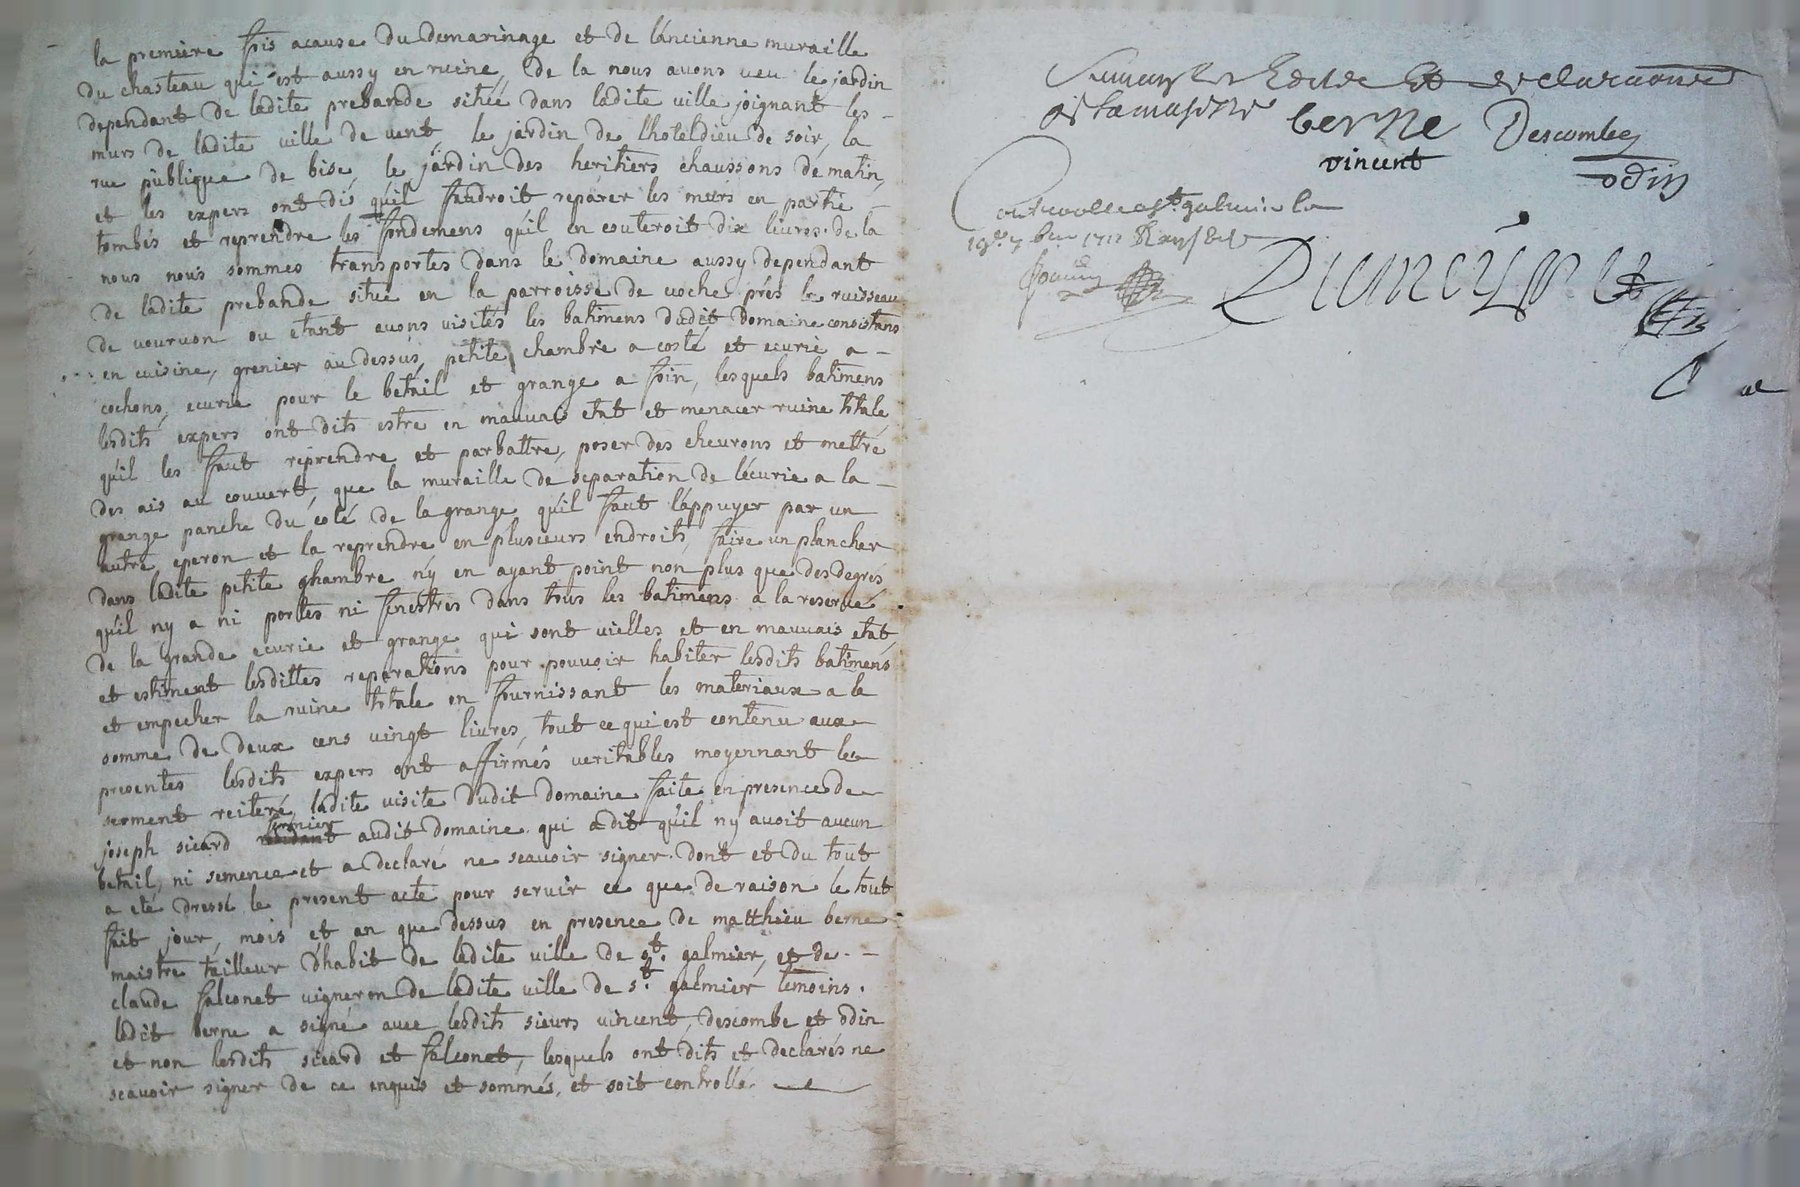 la premiere fois acause du demarinage et de l'ancienne muraille
du chasteau qui est aussy en ruine, de la nous avons veu le jardin
dependant de ladite prebande sitüé dans ladite ville joignant les
murs de ladite ville de vent, le jardin de lhoteldieu de soir, la
rue publique de bise, le jardin des heritiers chaussons de matin,
et les expers ont dit qu'il faudroit reparer les murs en partie
tombés et reprendre les fondemens qu'il en couteroit dix livres. de la
nous nous sommes transportes dans le domaine aussy dependant
de ladite prebande situé en la parroisse de voche prés le ruisseau
de vourvon ou etant avons visités les batimens dudit domaine consistans
en cuisine, grenier au dessus, petite chambre a costé et ecurie a
cochons, ecurie pour le betail et grange a foin, lesquels batimens
lesdits expers ont dits estre en mauvais etat et menacer ruine totale
qu'il les faut reprendre et parbattre, poser des chevrons et mettre
des ais au couvert, que la muraille de separation de lécurie a la
grange panche du coté de la grange qu'il faut lappuyer par un
autre eperon et la reprendre en plusieurs endroits, faire un plancher
dans ladite petite chambre n'y en ayant point non plus que des degrés
qu'il ny a ni portes ni fenestres dans tous les batimens a la reserve
de la grande ecurie et grange qui sont vielles et en mauvais etat
et estiment lesdittes reparations pour pouvoir habiter lesdits batimens
et empecher la ruine totale en fournissant les materiaux a la
somme de deux cens vingt livres, tout ce qui est contenu aux
presentes lesdits expers ont affirmés veritables moyennant le
serment reiteré, ladite visite dudit domaine faite en presence de
joseph sicard fermier audit domaine qui a dit qu'il ny avoit aucun
betail, ni semence et a declaré ne scavoir signer. dont et du tout
a eté dressé le present acte pour servir ce que de raison le tout
fait jour, mois et an que dessus en presence de matthieu berne
maistre tailleur d'habit de ladite ville de st. galmier, et de
claude falconet vigneron de ladite ville de st. galmier temoins.
ledit berne a signé avec lesdits sieurs vincent, descombe et odin
et non lesdits sicard et falconet, lesquels ont dits et declarés ne
scavoir signer de ce enquis et sommés, et soit controllé
berne Descombes
vincent odin
Controolle a st galmier le